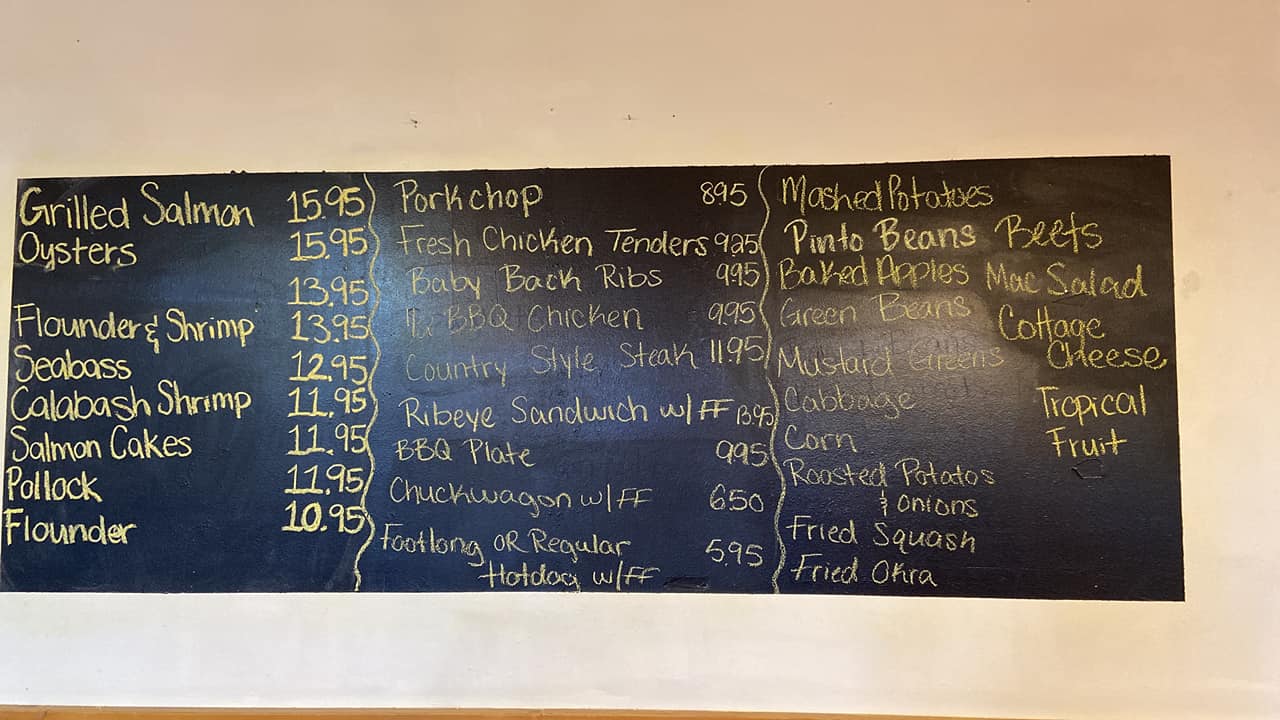 Grilled Salmon 15.95
Oysters 15.95
13.95
Flounder & Shrimp 13.95
Seabass 12.95
Calabash Shrimp 11.95
Salmon Cakes 11.95
Pollock 11.95
Flounder 10.95
Pork chop 895
Fresh Chicken Tenders 925
Baby Back Ribs 995
BBQ Chicken 995
Country Style Steak 1195
Ribeye Sandwich w/FF 13.95
BBQ Plate 995
Chuckwagon w/FF 650
Footlong OR Regular 5.95
Hotdog w/FF
Mashed Potatoes
Pinto Beans
Baked Apples
Green Beans
Mustard Greens
Cabbage
Corn
Roasted Potatos
& onions
Fried Squash
Fried Okra
Beets
Mac Salad
Cottage
Cheese
Tropical
Fruit